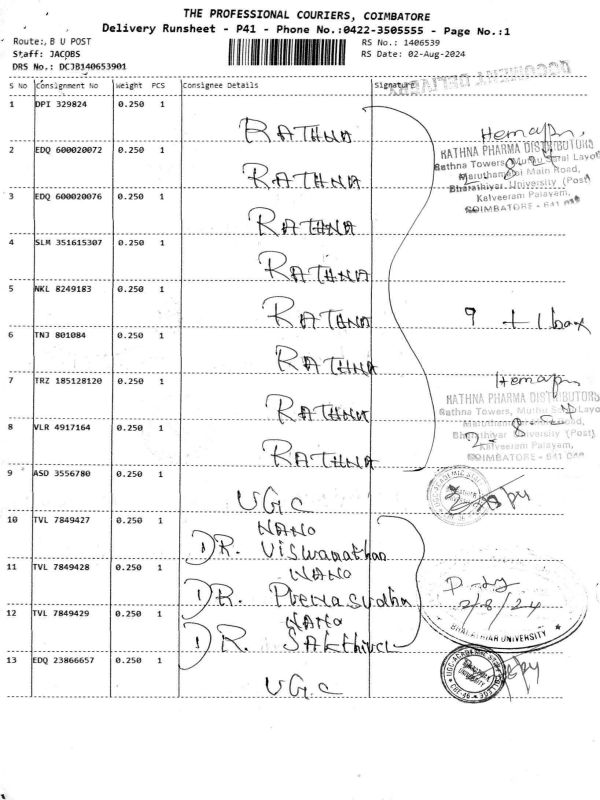 THE PROFESSIONAL COURIERS, COIMBATORE
Delivery Runsheet - P41 - Phone No.:0422-3505555 - Page No.:1
Route:, B U POST
Staff: JACOBS
DRS No.: DCJB140653901
RS No.: 1406539
RS Date: 02-Aug-2024
S No Consignment No Weight PCS Consignee Details Signature
1 DPI 329824 0.250 1
RATHNA
2 EDQ 600020072 0.250 1
RATHNA
3 EDQ 600020076 0.250 1
RATHNA
4 SLM 351615307 0.250 1
RATHNA
5 NKL 8249183 0.250 1
RATHNA
6 TNJ 801084 0.250 1
RATHNA
7 TRZ 185128120 0.250 1
RATHNA
8 VLR 4917164 0.250 1
RATHNA
RATHNA PHARMA DISTRIBUTORS
Rathna Towers, Muthu Layo
Maruthamalai Main Road,
Bharathiyar University (Post)
Kalveeram Palayam,
COIMBATORE - 641
9 + 1 box
RATHNA PHARMA DISTRIBUTORS
Rathna Towers, Muthu Layo
Bharathiyar University (Post)
Kalveeram Palayam,
COIMBATORE - 641
9 ASD 3556780 0.250 1
UGC
10 TVL 7849427 0.250 1
NANO
DR. Viswanathan
11 TVL 7849428 0.250 1
NANO
DR.
12 TVL 7849429 0.250 1
NANO
DR. Sakthivel
2/8/24
BHARATHIAR UNIVERSITY
13 EDQ 23866657 0.250 1
UGC